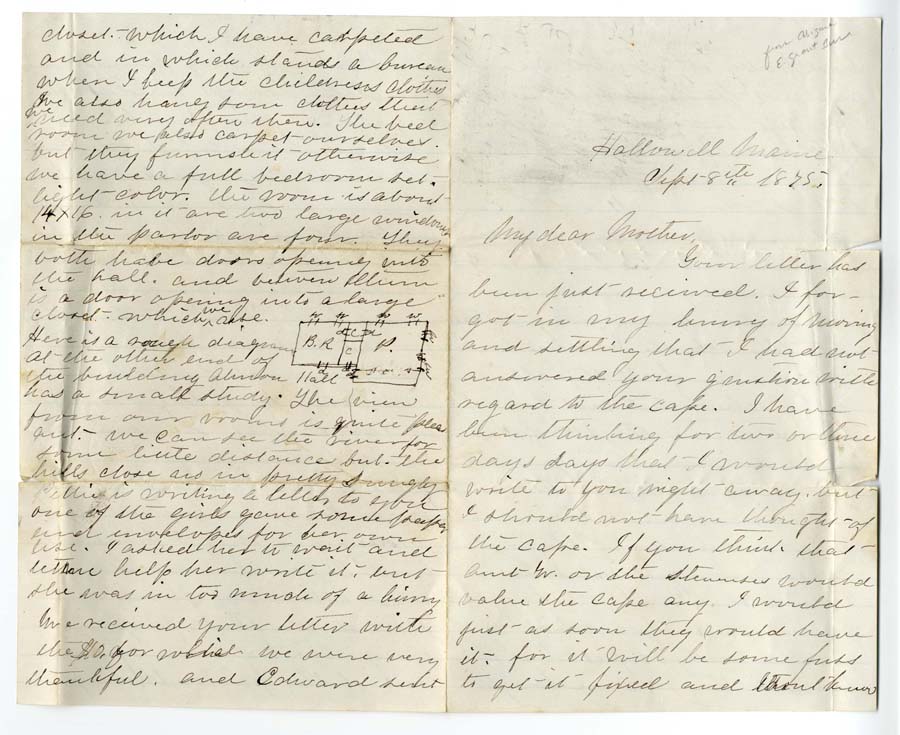 Hallowell Maine
Sept 8th 1875.
My dear Mother,
Your letter has
been just received. I for-
got in my hurry of moving
and settling that I had not
answered your question with
regard to the cape. I have
been thinking for two or three
days days that I would
write to you right away, but
I should not have thought of
the cape. If you think that
aunt W. or the Stevenses would
value the cape any. I would
just as soon they would have
it. for it will be some fuss
to get it fixed and I dont know
closet. which I have carpeted
and in which stands a bureau
when I keep the childrens clothes
We also hang som clothes that
we need very often then. The bed
room we also carpet ourselves.
but they furnish it otherwise
we have a full bedroom set.
light color. the room is about
14 x 16. in it are two large windows
in the parlor are four. They
both have doors opening into
the hall. and between them
is a door opening into a large
closet. which we use.
Here is a rough diagram
at the other end of
the building
has a small study. The view
from our rooms is quite pleas
ant. we can see the river for
some little distance but the
hills close us in pretty snugly
is writing a letter to you
one of the girls gave some paper
and envelopes for her own
use. I asked her to wait and
let me help her write it. but
she was in too much of a hurry
We received your letter with
the for which we were very
thankful. and Edward sent
w w w w
B.R. C P.
Hall